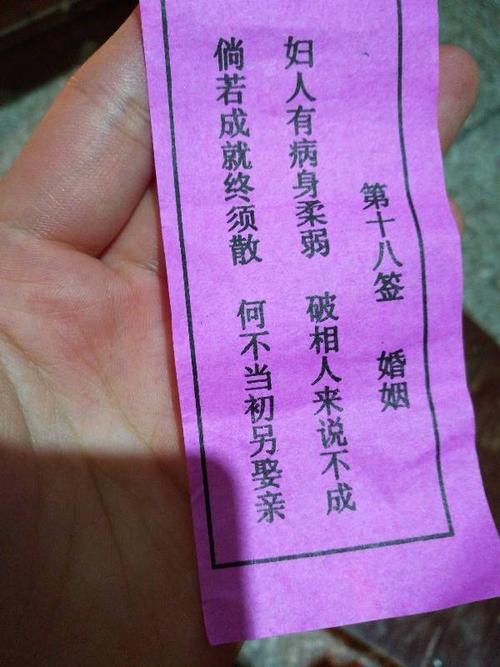 第十八签 婚姻
妇人有病身柔弱 破相人来说不成
倘若成就终须散 何不当初另娶亲